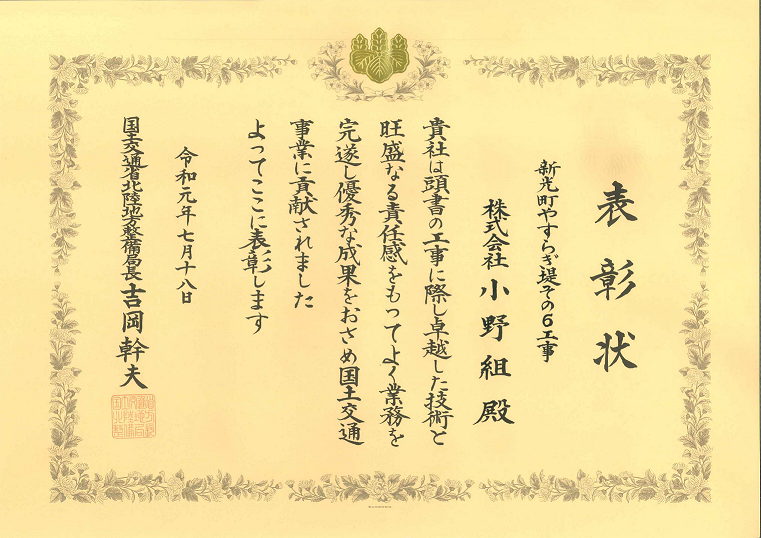 表彰状
新光町やすらぎ堤その6工事
株式会社 小野組 殿
貴社は頭書の工事に際し卓越した技術と
旺盛なる責任感をもってよく業務を
完遂し優秀な成果をおさめ国土交通
事業に貢献されました
よってここに表彰します
令和元年七月十八日
国土交通省北陸地方整備局長 吉岡幹夫